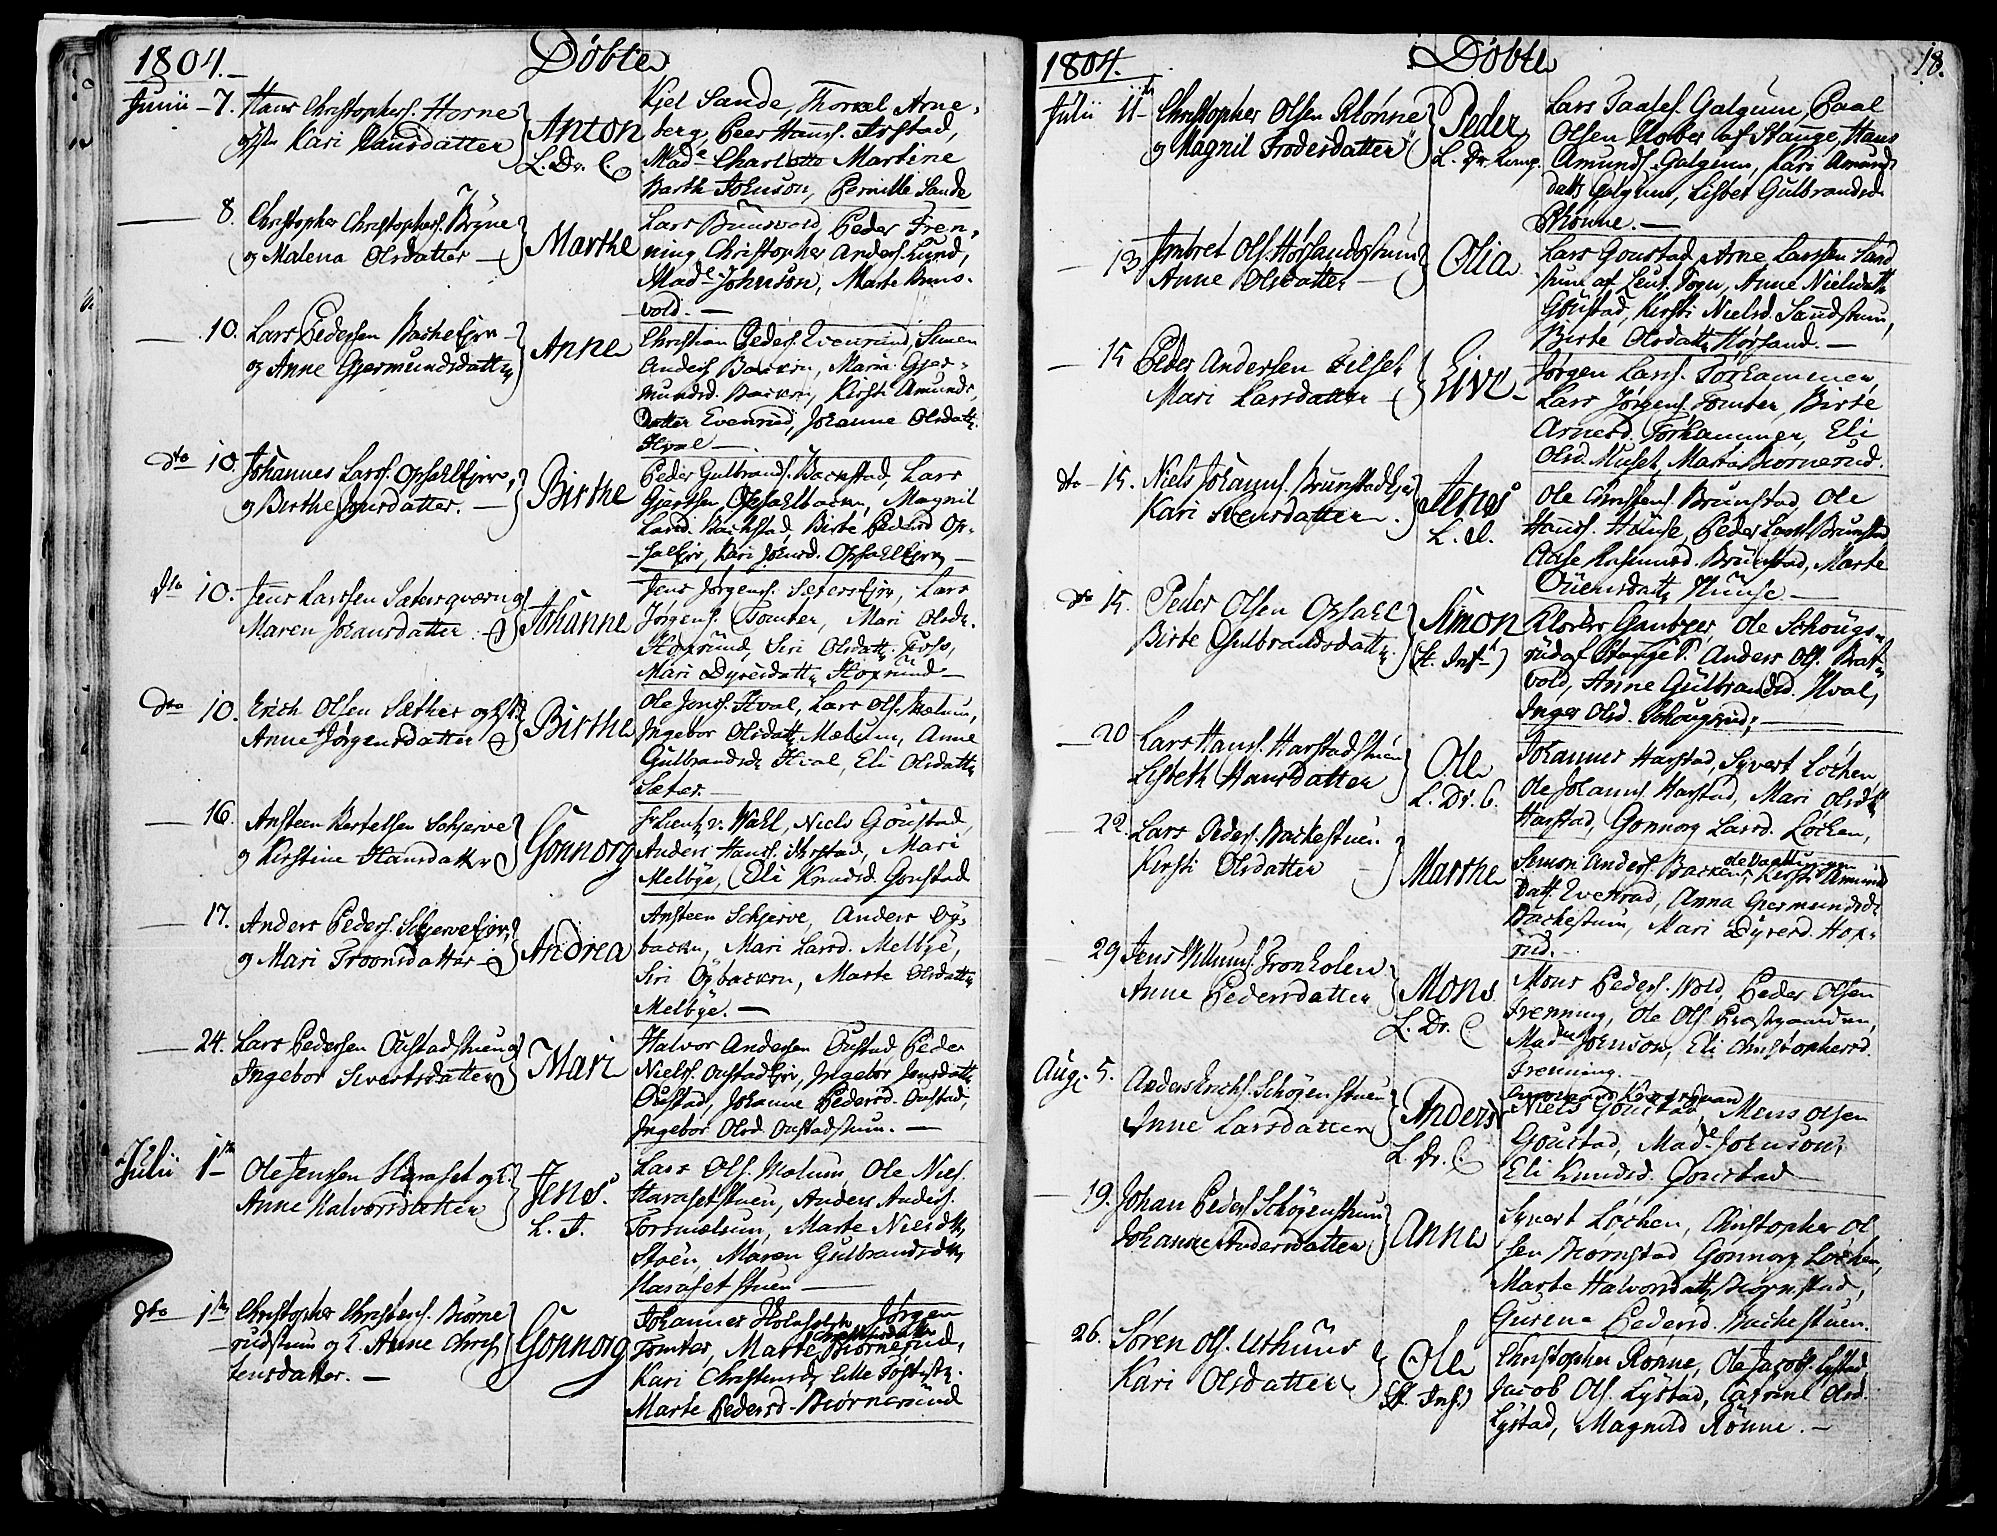 1804.
Döbte
Junii - 7. Hans Christophers. Horne
og H. Kari Hansdatter
Anton
L. Dr. C.
Kjel Sande, Thorkel Arne-
berg, Peer Hanss. Arstad,
Made Charlotte Martine
Barth Johnson, Pernille Sande
8. Christopher Christophers. Bryne
og Malena Olsdatter
Marthe
Lars Bunsvold, Peder Fren-
ning, Christopher Anders. Lund,
Made Johnson, Marte Buns-
vold.
10. Lars Pedersen Backe Ejer
og Anne Gjermundsdattr
Anne
Christian Peders. Evenrud, Simen
Anders. Backen, Maria Gjer-
mundsd. Backen, Kirsti Amunds-
datter Evenrud, Johanne Olsdattr
Hval
dto 10. Johannes Larss. Opsahl Ejer,
og Birthe Jonsdatter.
Birthe
Peder Gulbrands. Backstad, Lars
Gjertsen Opsahlbacken, Magnil
Larsd. Backstad, Birte Pedersd. Op-
sal Ejer, Kari Johnsd. Opsahl Ejer
dto 10. Jens Larssen Sætersqværn og
Maren Johansdatter
Johanne
Jens Jørgens. Sæters Ejer, Lars
Jørgens. Tomter, Mari Olsd.
Hoxrund, Siri Olsdattr Foss,
Mari Dyresdattr Hoxrund
dto 10. Erich Olsen Sæther og H.
Anne Jørgensdatter
Birthe
Ole Jonss. Hval, Lars Ols. Mælum,
Ingebor Olsdattr Mælum, Anne
Gulbrandsd. Hval, Eli Olsdattr
Sæter.
16. Ansteen Bertelsen Schjerve
og Kirstine Hansdatter
Gonnorg
Fr Lieut v. Wahl, Niels Goustad,
Anders Hanss. Arstad, Mari
Melbye, Eli Knudsd. Goustad
17. Anders Peders. Schjerve Ejer,
og Mari Troonsdatter
Andrea
Ansteen Schjerve, Anders By-
backen, Mari Larsd. Melbye,
Siri Bybacken, Marte Olsdattr
Melbye.
24. Lars Pedersen Oustadstuen og
Ingebor Sivertsdatter
Mari
Halvor Andersen Oustad, Peder
Nielss. Oustad Ejer, Ingebor Jensdattr
Oustad, Johanne Pedersd. Oustad,
Ingebor Olsd. Oustadstuen.
Julii 1ste Ole Jenssen Haraset og H.
Anne Halvorsdatter
Jens.
L. T.
Lars Ols. Mælum, Ole Niels.
Harasetstuen, Anders Anders.
Torsmælum, Marte Nielsdtr
Støen, Maren Gulbrandsdtr
Haraset stuen
dto 1ste Christopher Christens. Biørne
rudstuen og H. Anne Chris
tensdatter.
Gonnorg
Johannes Holmseth, Jørgen
Tomter, Marte Biørnerud,
Kari Christensd. Lille Tøfstestr.
Marte Pedersd. Biørnerund
1804.
Döbte
18.
Julii 11te Christopher Olsen Rønne
og Magnil Frodesdatter
Peder
L. Dr. Comp.
Lars Paals. Galgum, Paal
Olsen Klober af Stange, Hans
Amunds. Galgum, Kari Amunds
datt. Galgum, Lisbet Gulbrandsd.
Rønne.
13 Imbret Ols. Hørsandstuen
Anne Olsdatter
Olia
Lars Goustad, Arne Larssen Sand
stuen af Leut. Togn, Anne Nielsdattr
Goustad, Kirsti Nielsd. Sandstuen,
Birte Olsdattr Hørsand.
15 Peder Andersen Filset
Mari Larsdatter
Live
Jørgen Larss. Torhammer,
Lars Jørgens. Tomter, Birte
Arnesd. Torhammer, Eli
Olsd. Muset, Maria Biørnerud.
dto 15. Niels Johanns. Brunstad Ejer
Kari Stensdatter
Jens
L. D.
Ole Christens. Brunstad, Ole
Hanss. Huuse, Peder Larss. Brunstad
Aase Rasmusd. Brunstad, Marte
Ouensdattr Huuse.
dto 15. Peder Olsen Opsahl
Birte Gulbrandsdattr
Simon
(St. Inf.)
Klocker Gautzer, Ole Schougs-
rud af Stange P. Anders Ols. Brat-
vold, Anne Gulbrandsd. Hval,
Inger Olsd. Schougsrud;
20 Lars Hanss. Harstadstuen
Lisbeth Hansdatter
Ole
L. Dr. C.
Johannes Harstad, Syvert Løchen,
Ole Johanns. Harstad, Mari Olsdtr
Harstad, Gonnorg Larsd. Løchen,
22. Lars Peders. Backestuen
Kirsti Olsdatter
Marthe
Simon Anders. Backen, Kirsti Amund
datt. Evenrud, Anna Gjermundsd.
Backestuen, Mari Dyresd. Hox-
rud.
29 Jens Villums. Tronholen
Anne Pedersdatter
Mons
L. Dr. C
Mons Peders. Wold, Peder Olsen
Frenning, Ole Ols. Præstgaarden,
Made Johnson, Eli Christophersd.
Frenning.
Aug. 5. Anders Erichs. Schøyenstuen
Anne Larsdatter
Anders
L. Dr. C
Niels Goustad, Mons Olsen
Goustad, Made Johnson,
Eli Knudsd. Goustad
19. Johan Peders. Schøyenstuen
Johanne Andersdatter
Anne
Syvert Løchen, Christopher Ol
sen Biørnstad, Gonnorg Løchen,
Marte Halvorsdattr Biørnstad,
Gurina Pedersd. Backestuen.
26. Sören Ols. Uthuus
Kari Olsdatter
Ole
(St. Inf.)
Christopher Rønne, Ole Jacobs. Lystad
Jacob Ols. Lystad, Catrine Olsd.
Lystad, Magnild Rønne.